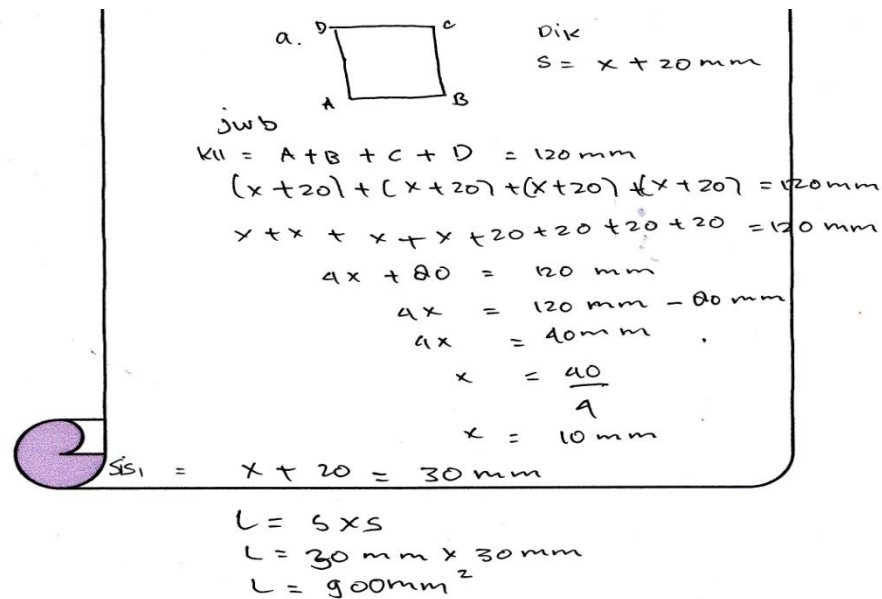 a. D C Dik
s = x + 20 mm
A B
jwb
Kll = A + B + C + D = 120 mm
(x + 20) + (x + 20) + (x + 20) + (x + 20) = 120 mm
x + x + x + x + 20 + 20 + 20 + 20 = 120 mm
4x + 80 = 120 mm
4x = 120 mm - 80 mm
4x = 40 mm
x = 40
4
x = 10 mm
Sisi = x + 20 = 30 mm
L = s x s
L = 30 mm x 30 mm
L = 900 mm²